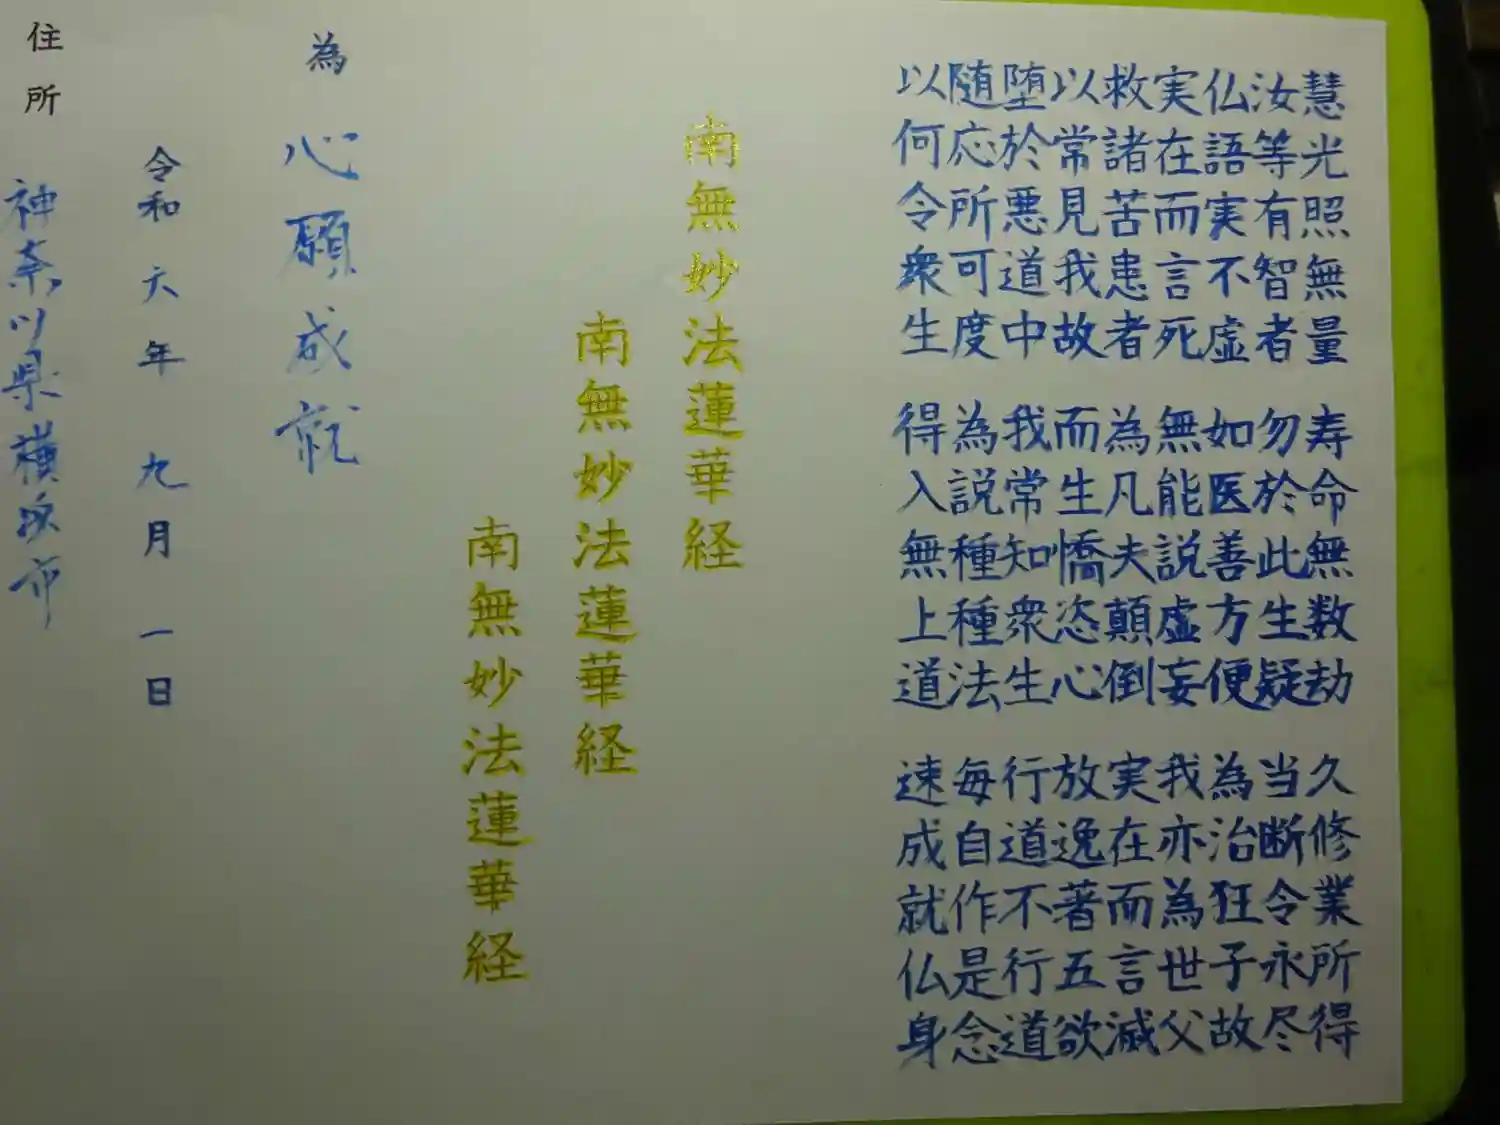 慧光照無量 寿命無数劫 久修業所得
汝等有智者 勿於此生疑 当断令永尽
仏語実不虚 如医善方便 為治狂子故
実在而言死 無能説虚妄 我亦為世父
救諸苦患者 為凡夫顛倒 実在而言滅
以常見我故 而生憍恣心 放逸著五欲
堕於悪道中 我常知衆生 行道不行道
随応所可度 為説種種法 毎自作是念
以何令衆生 得入無上道 速成就仏身
南無妙法蓮華経
南無妙法蓮華経
南無妙法蓮華経
為 心願成就
令和六年 九月一日
住所 神奈川県横浜市